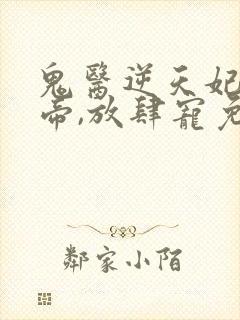 鬼醫逆天妃
帝,放肆寵
鄰家小陌